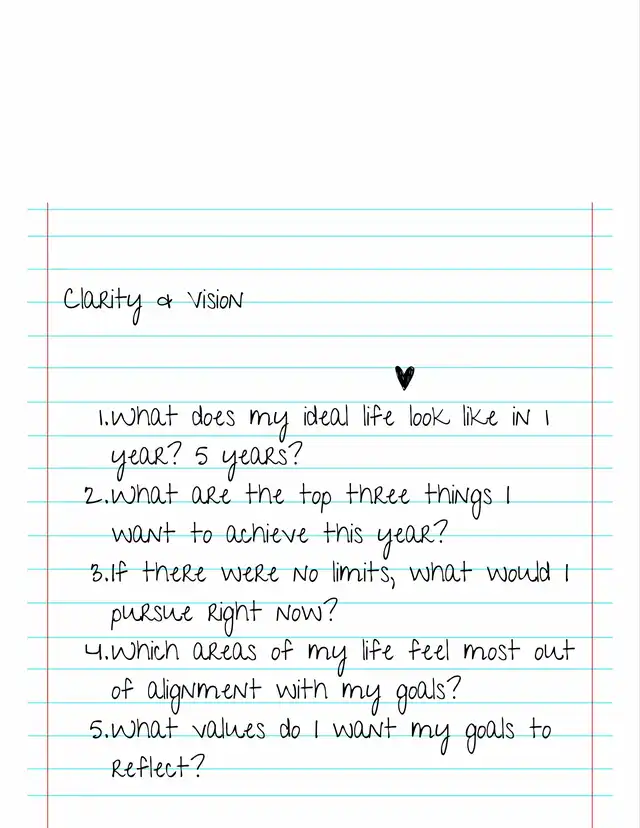 Clarity & Vision
1.What does my ideal life look like in 1
year? 5 years?
2.What are the top three things I
want to achieve this year?
3.If there were no limits, what would I
pursue right now?
4.Which areas of my life feel most out
of alignment with my goals?
5.What values do I want my goals to
reflect?